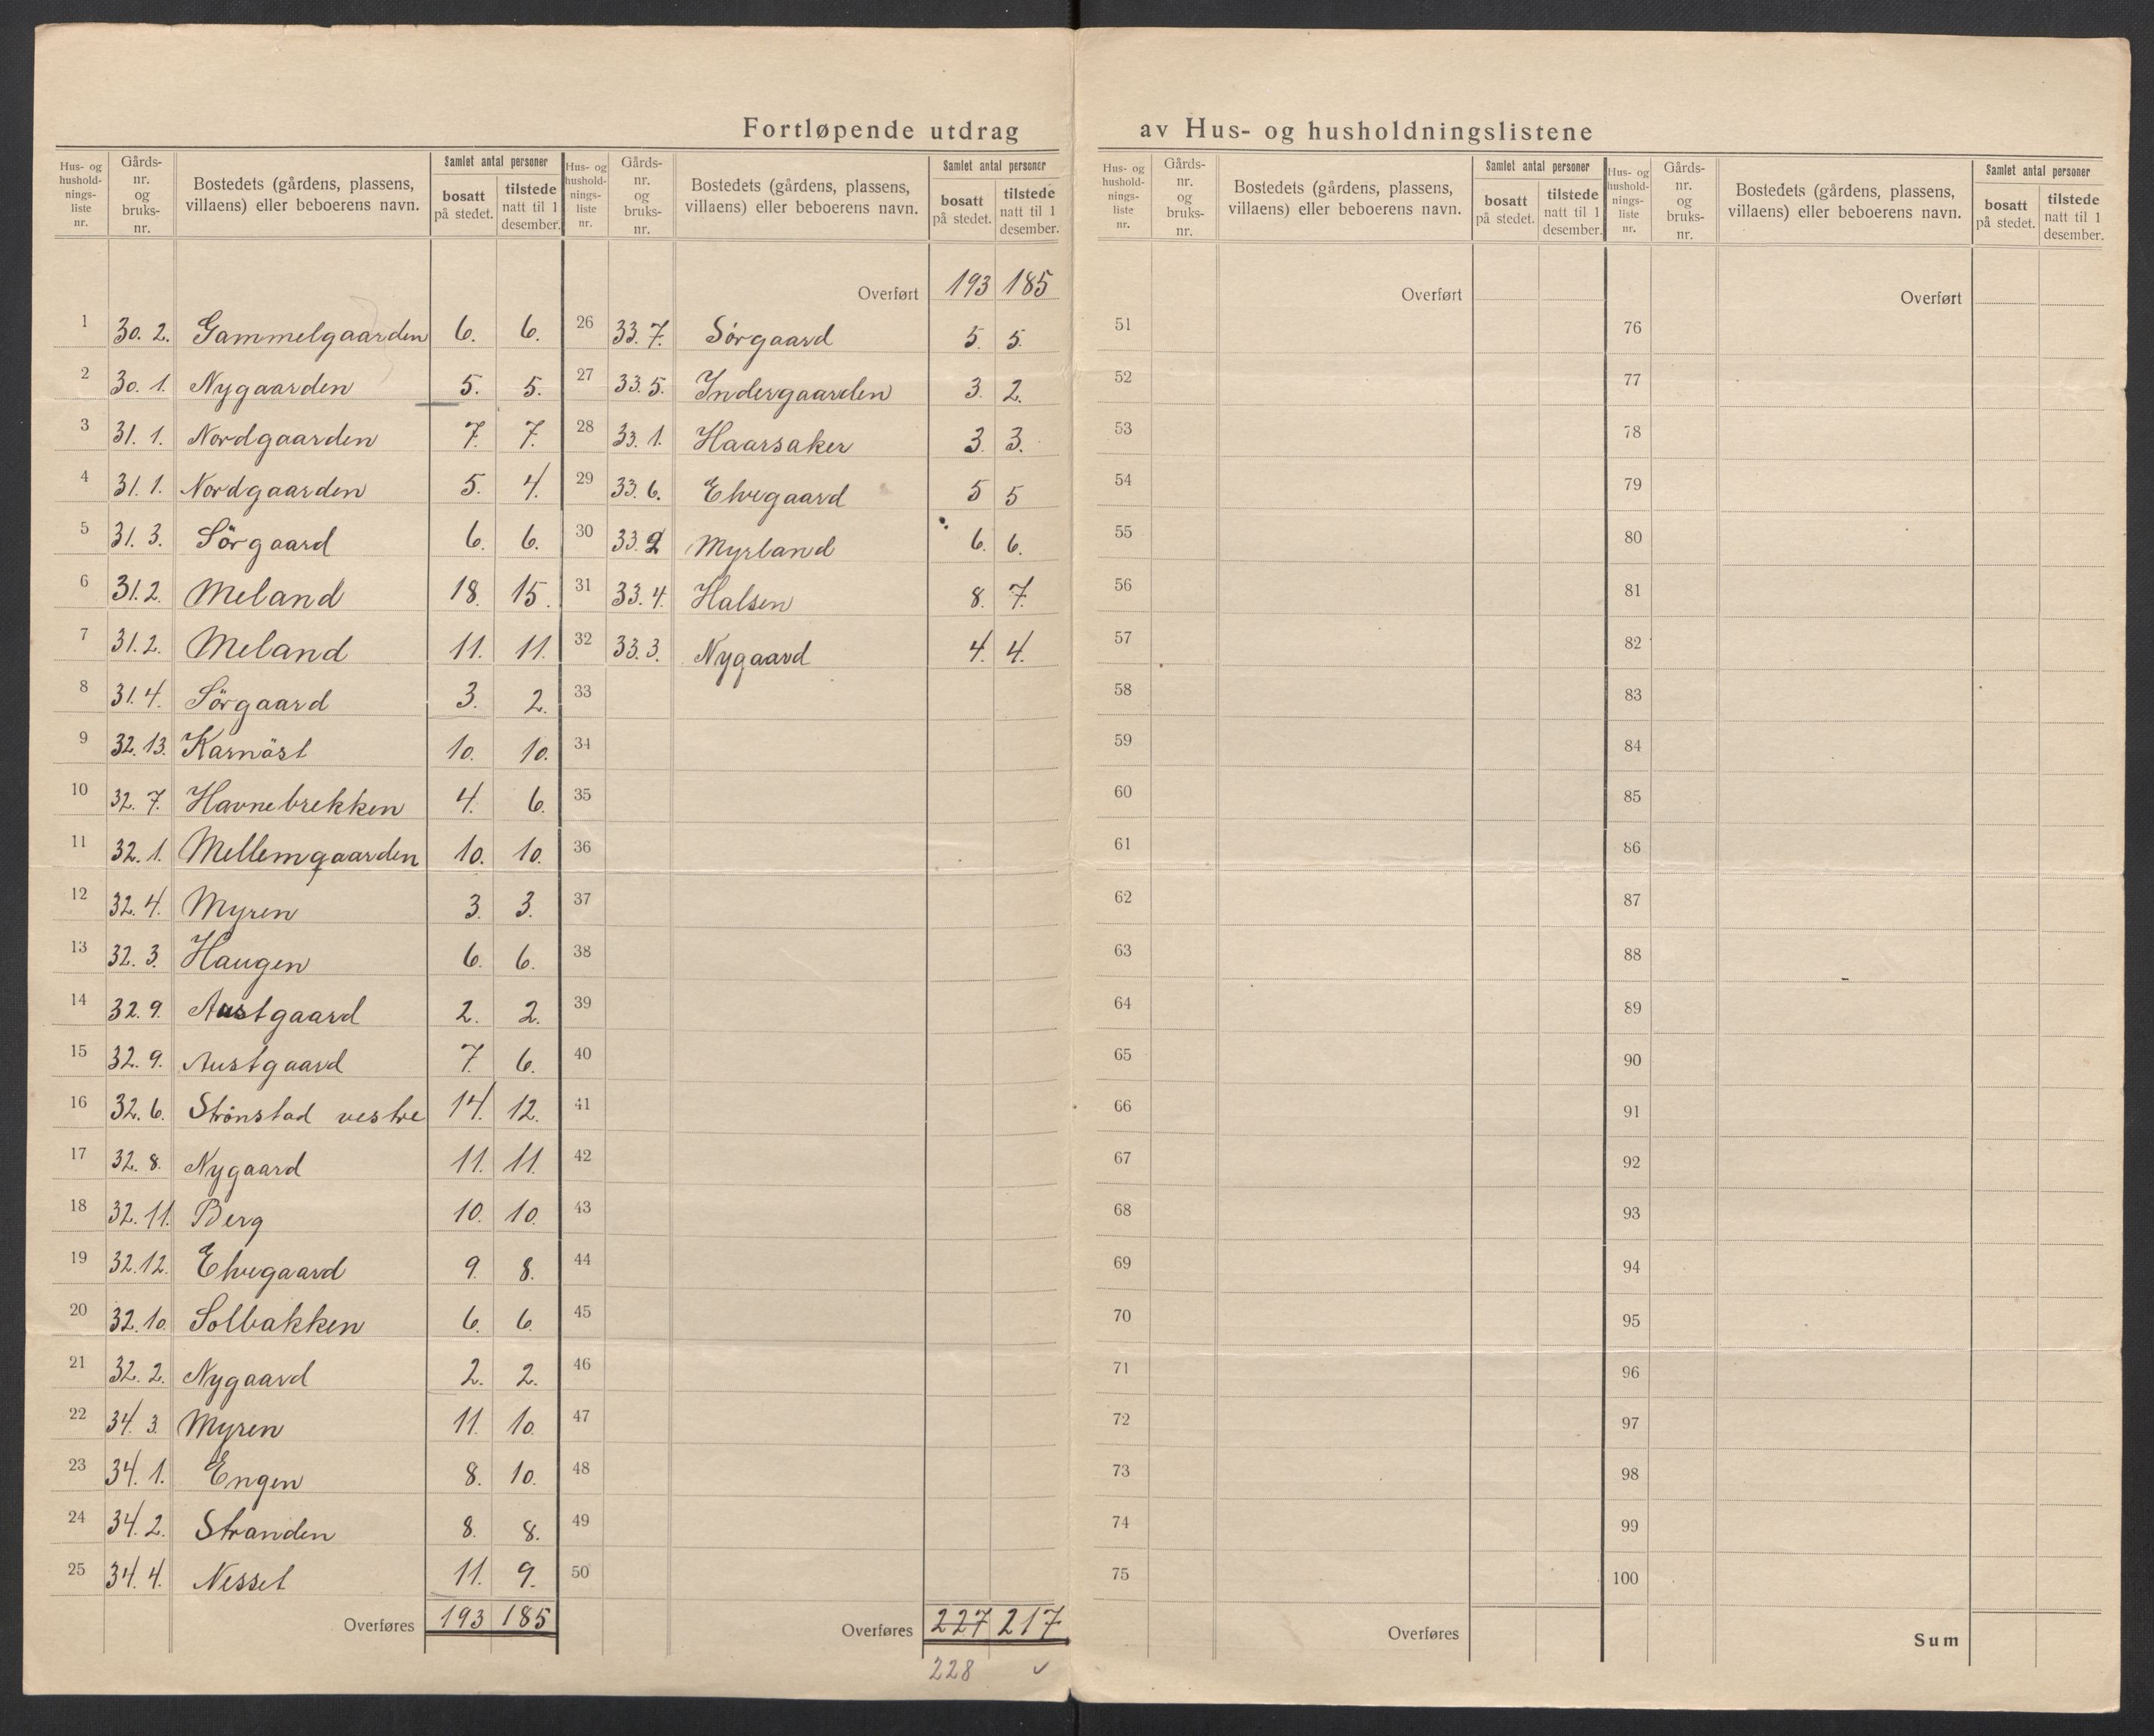 Fortløpende utdrag av Hus- og husholdningslistene
Hus- og hushold-nings-liste nr. | Gårds-nr. og bruks-nr. | Bostedets (gårdens, plassens, villaens) eller beboerens navn. | Samlet antal personer | bosatt på stedet. | tilstede natt til 1 desember.
1 30. 2. Gammelgaarden 6. 6.
2 30. 1. Nygaarden 5. 5.
3 31. 1. Nordgaarden 7. 7.
4 31. 1. Nordgaarden 5. 4.
5 31. 3. Sörgaard 6. 6.
6 31. 2. Meland 18. 15.
7 31. 2. Meland 11. 11.
8 31. 4. Sörgaard 3. 2.
9 32. 13. Karnäst 10. 10.
10 32. 7. Havnebrekken 4. 6.
11 32. 1. Mellemgaarden 10. 10.
12 32. 4. Myren 3. 3.
13 32. 3. Haugen 6. 6.
14 32. 9. Austgaard 2. 2.
15 32. 9. Austgaard 7. 6.
16 32. 6. Strönstad vestre 14. 12.
17 32. 8. Nygaard 11. 11.
18 32. 11. Berg 10. 10.
19 32. 12. Elvegaard 9. 8.
20 32. 10. Solbakken 6. 6.
21 32. 2. Nygaard 2. 2.
22 34. 3. Myren 11. 10.
23 34. 1. Engen 8. 10.
24 34. 2. Stranden 8. 8.
25 34. 4. Nesset 11. 9.
Overføres 193 185
Hus- og hushold-nings-liste nr. | Gårds-nr. og bruks-nr. | Bostedets (gårdens, plassens, villaens) eller beboerens navn. | Samlet antal personer | bosatt på stedet. | tilstede natt til 1 desember.
Overført 193 185
26 33. 7. Sörgaard 5. 5.
27 33. 5. Indergaarden 3. 2.
28 33. 1. Haarsaker 3. 3.
29 33. 6. Elvegaard 5 5
30 33. 2 Myrland 6. 6.
31 33. 4. Halsen 8. 7.
32 33. 3. Nygaard 4. 4.
33
34
35
36
37
38
39
40
41
42
43
44
45
46
47
48
49
50
Overføres 227 217
228 ✓
Hus- og hushold-nings-liste nr. | Gårds-nr. og bruks-nr. | Bostedets (gårdens, plassens, villaens) eller beboerens navn. | Samlet antal personer | bosatt på stedet. | tilstede natt til 1 desember.
Overført
51
52
53
54
55
56
57
58
59
60
61
62
63
64
65
66
67
68
69
70
71
72
73
74
75
Overføres
Hus- og hushold-nings-liste nr. | Gårds-nr. og bruks-nr. | Bostedets (gårdens, plassens, villaens) eller beboerens navn. | Samlet antal personer | bosatt på stedet. | tilstede natt til 1 desember.
Overført
76
77
78
79
80
81
82
83
84
85
86
87
88
89
90
91
92
93
94
95
96
97
98
99
100
Sum